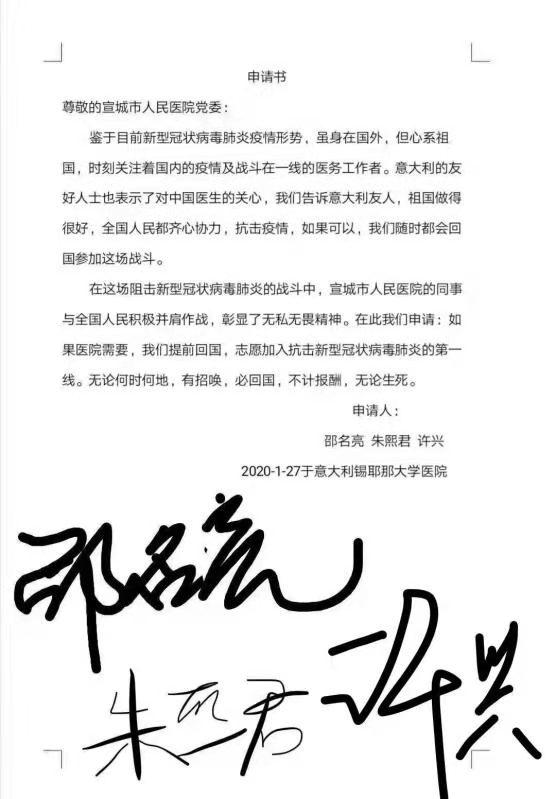 申请书
尊敬的宣城市人民医院党委：
鉴于目前新型冠状病毒肺炎疫情形势，虽身在国外，但心系祖
国，时刻关注着国内的疫情及战斗在一线的医务工作者。意大利的友
好人士也表示了对中国医生的关心，我们告诉意大利友人，祖国做得
很好，全国人民都齐心协力，抗击疫情，如果可以，我们随时都会回
国参加这场战斗。
在这场阻击新型冠状病毒肺炎的战斗中，宣城市人民医院的同事
与全国人民积极并肩作战，彰显了无私无畏精神。在此我们申请：如
果医院需要，我们提前回国，志愿加入抗击新型冠状病毒肺炎的第一
线。无论何时何地，有招唤，必回国，不计报酬，无论生死。
申请人：
邵名亮 朱熙君 许兴
2020-1-27于意大利锡耶那大学医院
邵名亮
许兴
朱熙君